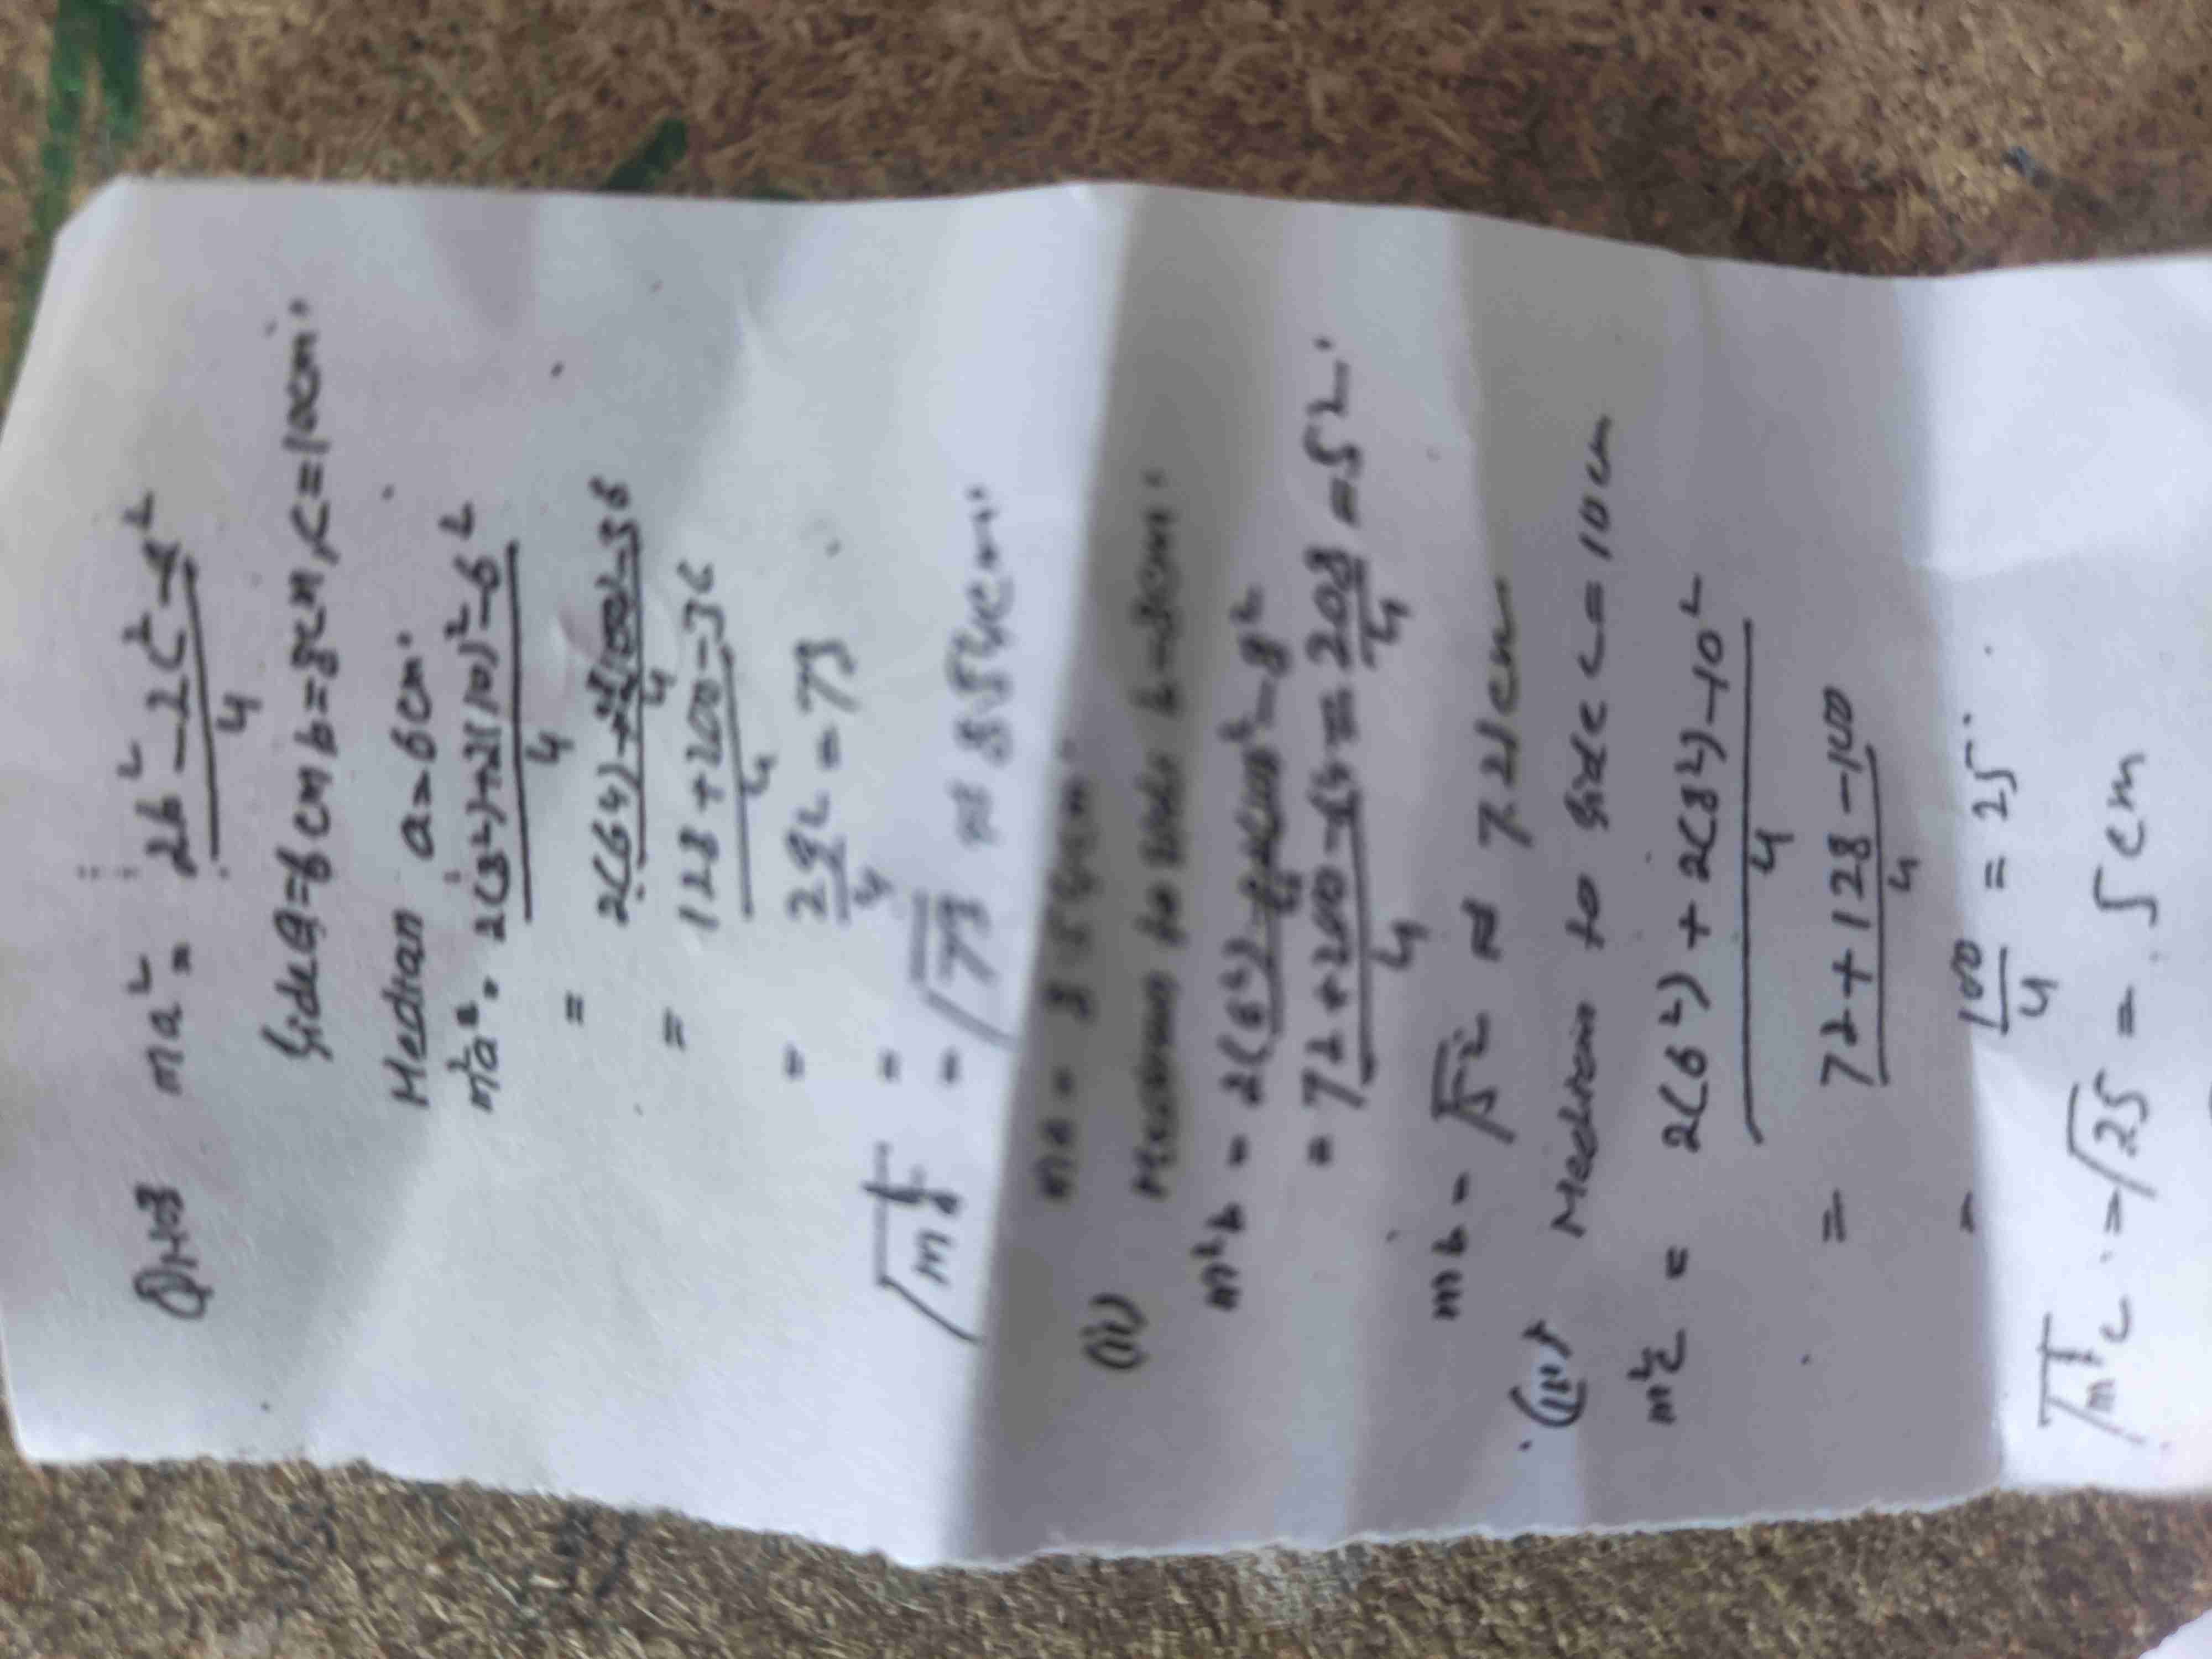 QN03 ma² = 2b² - 2c² - a² / 4
Side a = 6 cm b = 8cm, c = 10cm.
Median a = 6cm.
m²a = 2(8²)+2(10)² - 6² / 4
= 2(64)+2(100)-36 / 4
= 128 + 200 - 36 / 4
= 292 / 4 = 73
= √73 ≈ 8.54cm.
ma = 8.54cm
(ii) Median to side b = 8cm.
m²b = 2(6²) + 2(10)² - 8²
= 72 + 200 - 64 / 4 = 208 / 4 = 52.
mb = √52 ≈ 7.21cm
(iii) Median to side c = 10cm
m²c = 2(6²) + 2(8²) - 10² / 4
= 72 + 128 - 100 / 4
= 100 / 4 = 25.
√m²c = √25 = 5cm